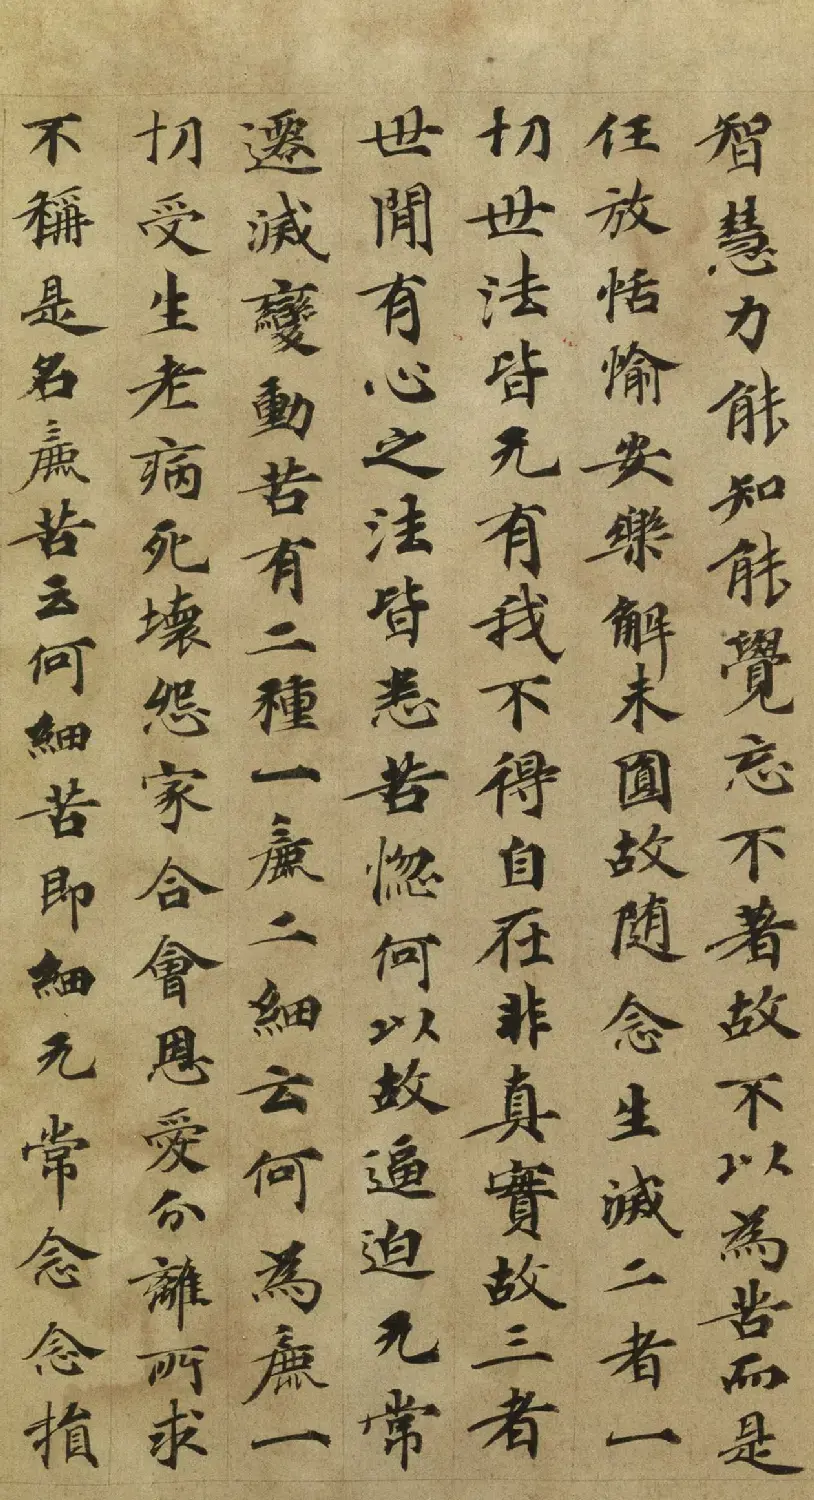 智慧力能知能覺忘不著故不以為苦而是
任放恬愉安樂解未圓故随念生滅二者一
切世法皆无有我不得自在非真實故三者
世間有心之法皆悉苦惚何以故逼迫无常
遷滅變動苦有二種一麁二細云何為麁一
切受生老病死壞怨家合會恩愛分離所求
不稱是名麁苦云何細苦即細无常念念損